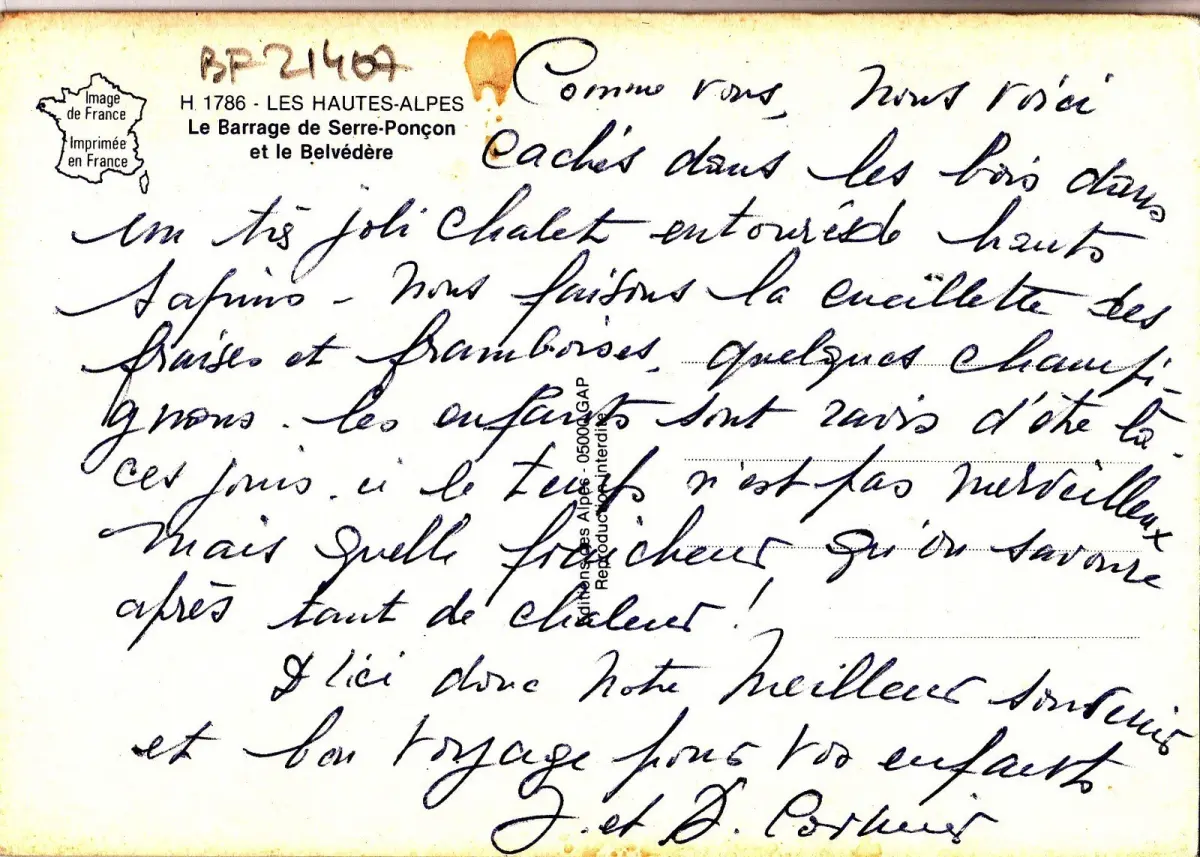 BF 21407
Image
de France
Imprimée
en France
H 1786 - LES HAUTES-ALPES
Le Barrage de Serre-Ponçon
et le Belvédère
Comme vous, nous voici
cachés dans les bois dans
un très joli chalet entourés de hauts
sapins - Nous faisons la cueillette des
fraises et framboises, quelques champi-
gnons. les enfants sont ravis d'être là.
ces jours. ci le temps n'est pas merveilleux
mais quelle fraîcheur qu'on savoure
après tant de chaleur !
D'ici donc notre meilleur souvenir
et bon voyage pour vos enfants
J. et D.
Editions des Alpes - 05000 GAP
Reproduction interdite